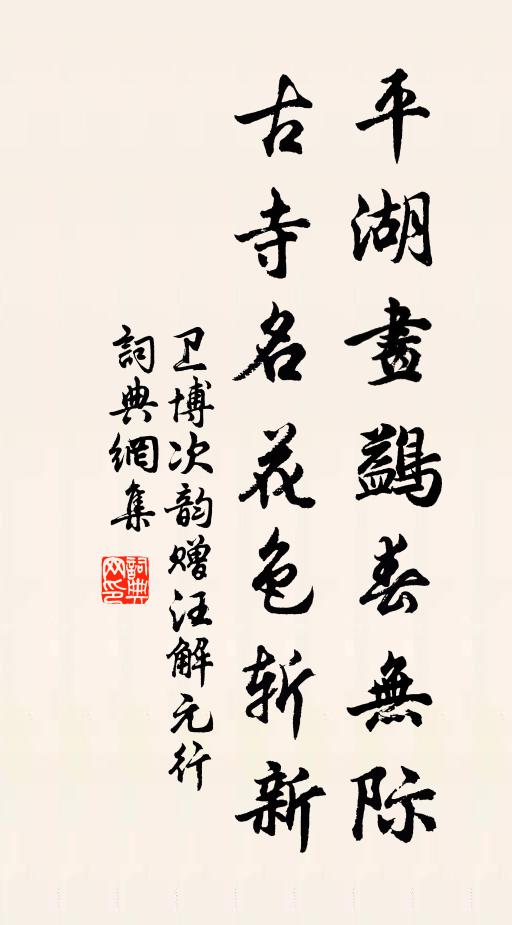 平湖畫鷁春無际
古寺名花色斬新
卫博次韵赠汪解元行
詞典網集
詞典网印